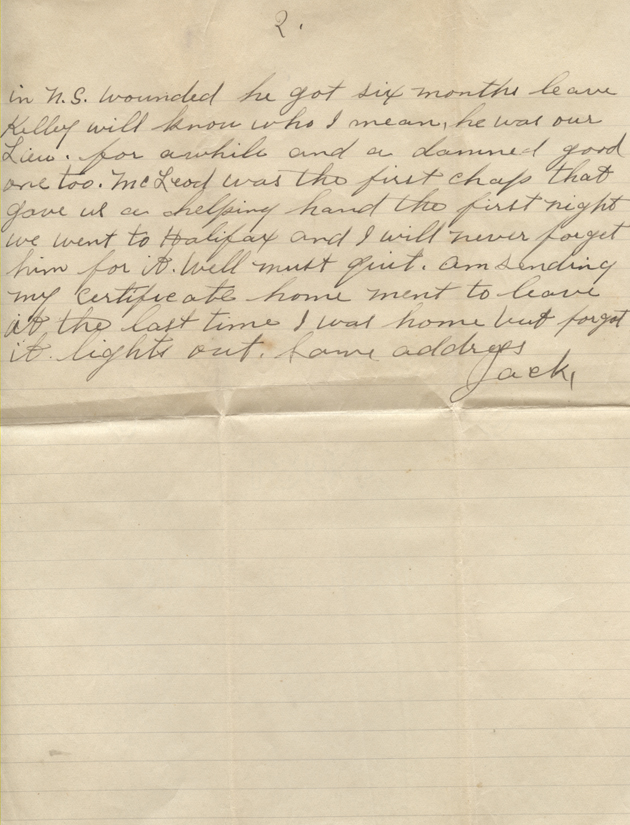 2.
in N.S. wounded he got six months leave
Kelley will know who I mean, he was our
Lieu. for awhile and a damned good
one too. McLeod was the first chap that
gave us a helping hand the first night
we went to Halifax and I will never forget
him for it. Well must quit. am sending
my certificate home ment to leave
it the last time I was home but forgot
it. lights out. Same address
Jack,